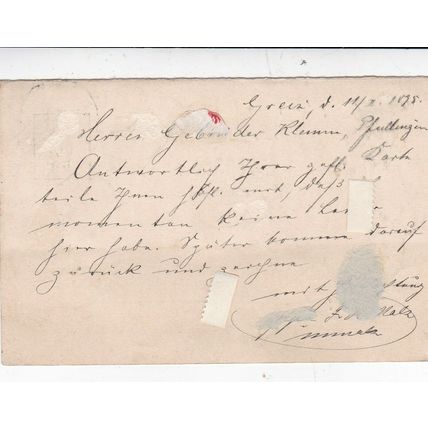 Greiz, d. 11/II. 1895.
Herren Gebrüder Klemm, Pfullingen
Antwortlich Ihrer gefl. Karte
teile Ihnen höfl. mit, daß
momentan keine
hier habe. Später komme darauf
zurück und zeichne
mit